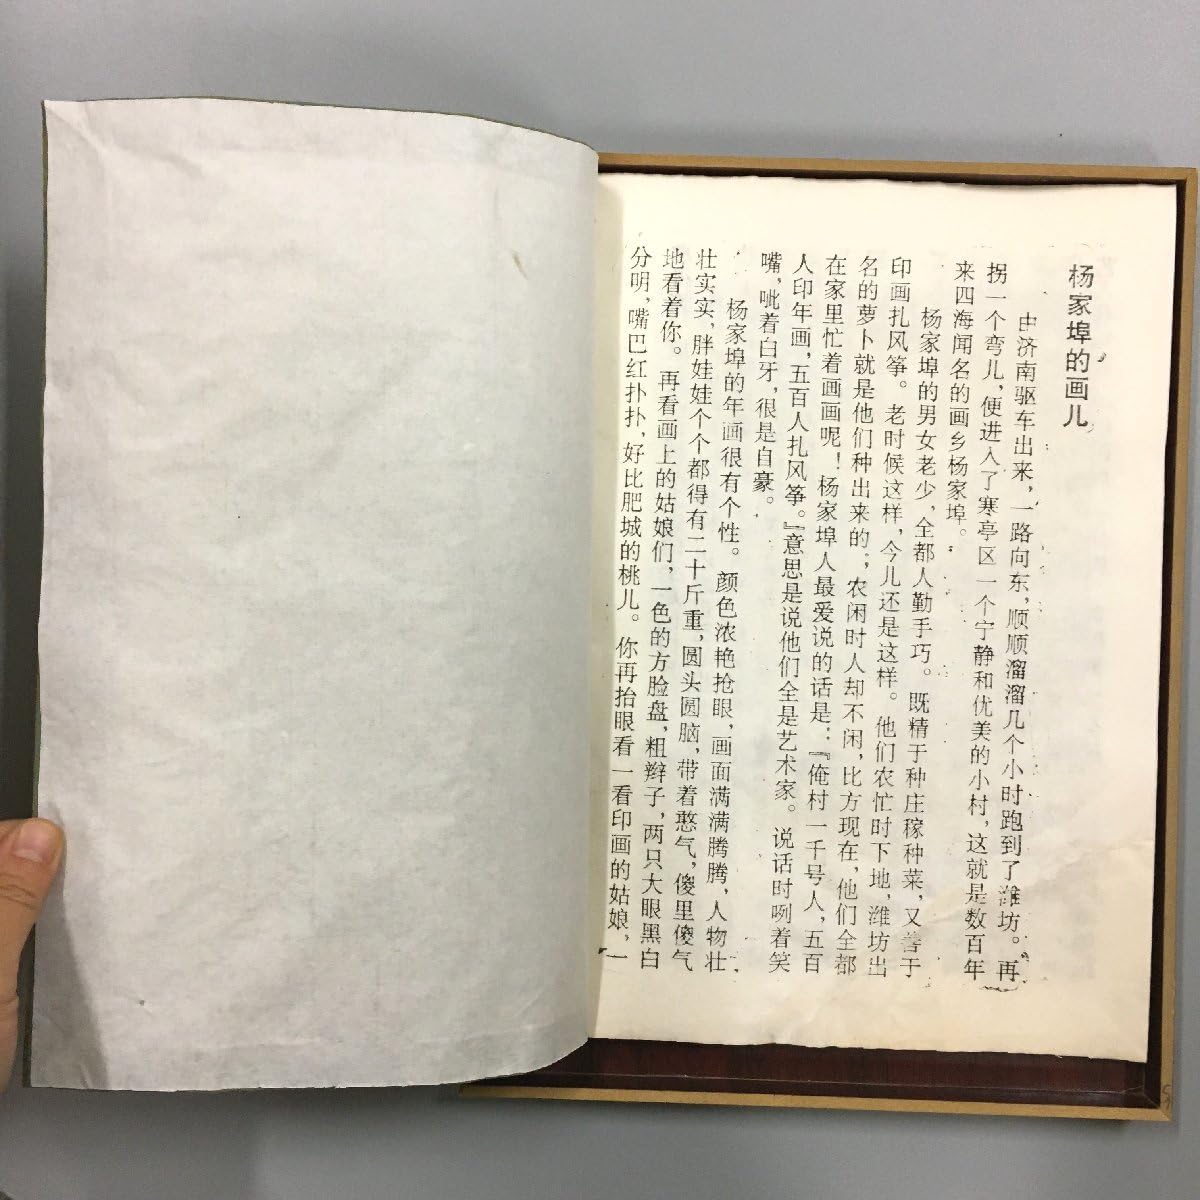 杨家埠的画儿
由济南驱车出来，一路向东，顺顺溜溜几个小时跑到了潍坊。再
拐一个弯儿，便进入了寒亭区一个宁静和优美的小村，这就是数百年
来四海闻名的画乡杨家埠。
杨家埠的男女老少，全都人勤手巧。既精于种庄稼种菜，又善于
印画扎风筝。老时候这样，今儿还是这样。他们农忙时下地，潍坊出
名的萝卜就是他们种出来的；农闲时人却不闲，比方现在，他们全都
在家里忙着画画呢！杨家埠人最爱说的话是：『俺村一千号人，五百
人印年画，五百人扎风筝。』意思是说他们全是艺术家。说话时咧着笑
嘴，呲着白牙，很是自豪。
杨家埠的年画很有个性。颜色浓艳抢眼，画面满满腾腾，人物壮
壮实实，胖娃娃个个都得有二十斤重，圆头圆脑，带着憨气，傻里傻气
地看着你。再看画上的姑娘们，一色的方脸盘，粗辫子，两只大眼黑白
分明，嘴巴红扑扑，好比肥城的桃儿。你再抬眼看一看印画的姑娘，一